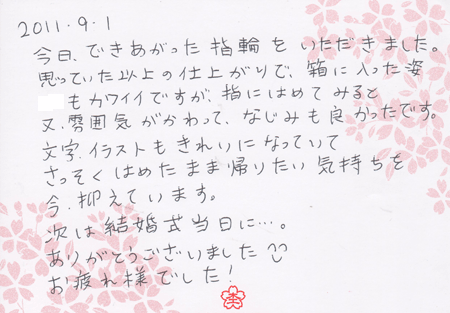 2011.9.1
今日、できあがった指輪をいただきました。
思っていた以上の仕上がりで、箱に入った姿
もカワイイですが、指にはめてみると
又、雰囲気がかわって、なじみも良かったです。
文字、イラストもきれいになっていて
さっそくはめたまま帰りたい気持ちを
今、抑えています。
次は結婚式当日に…。
ありがとうございました
お疲れ様でした!